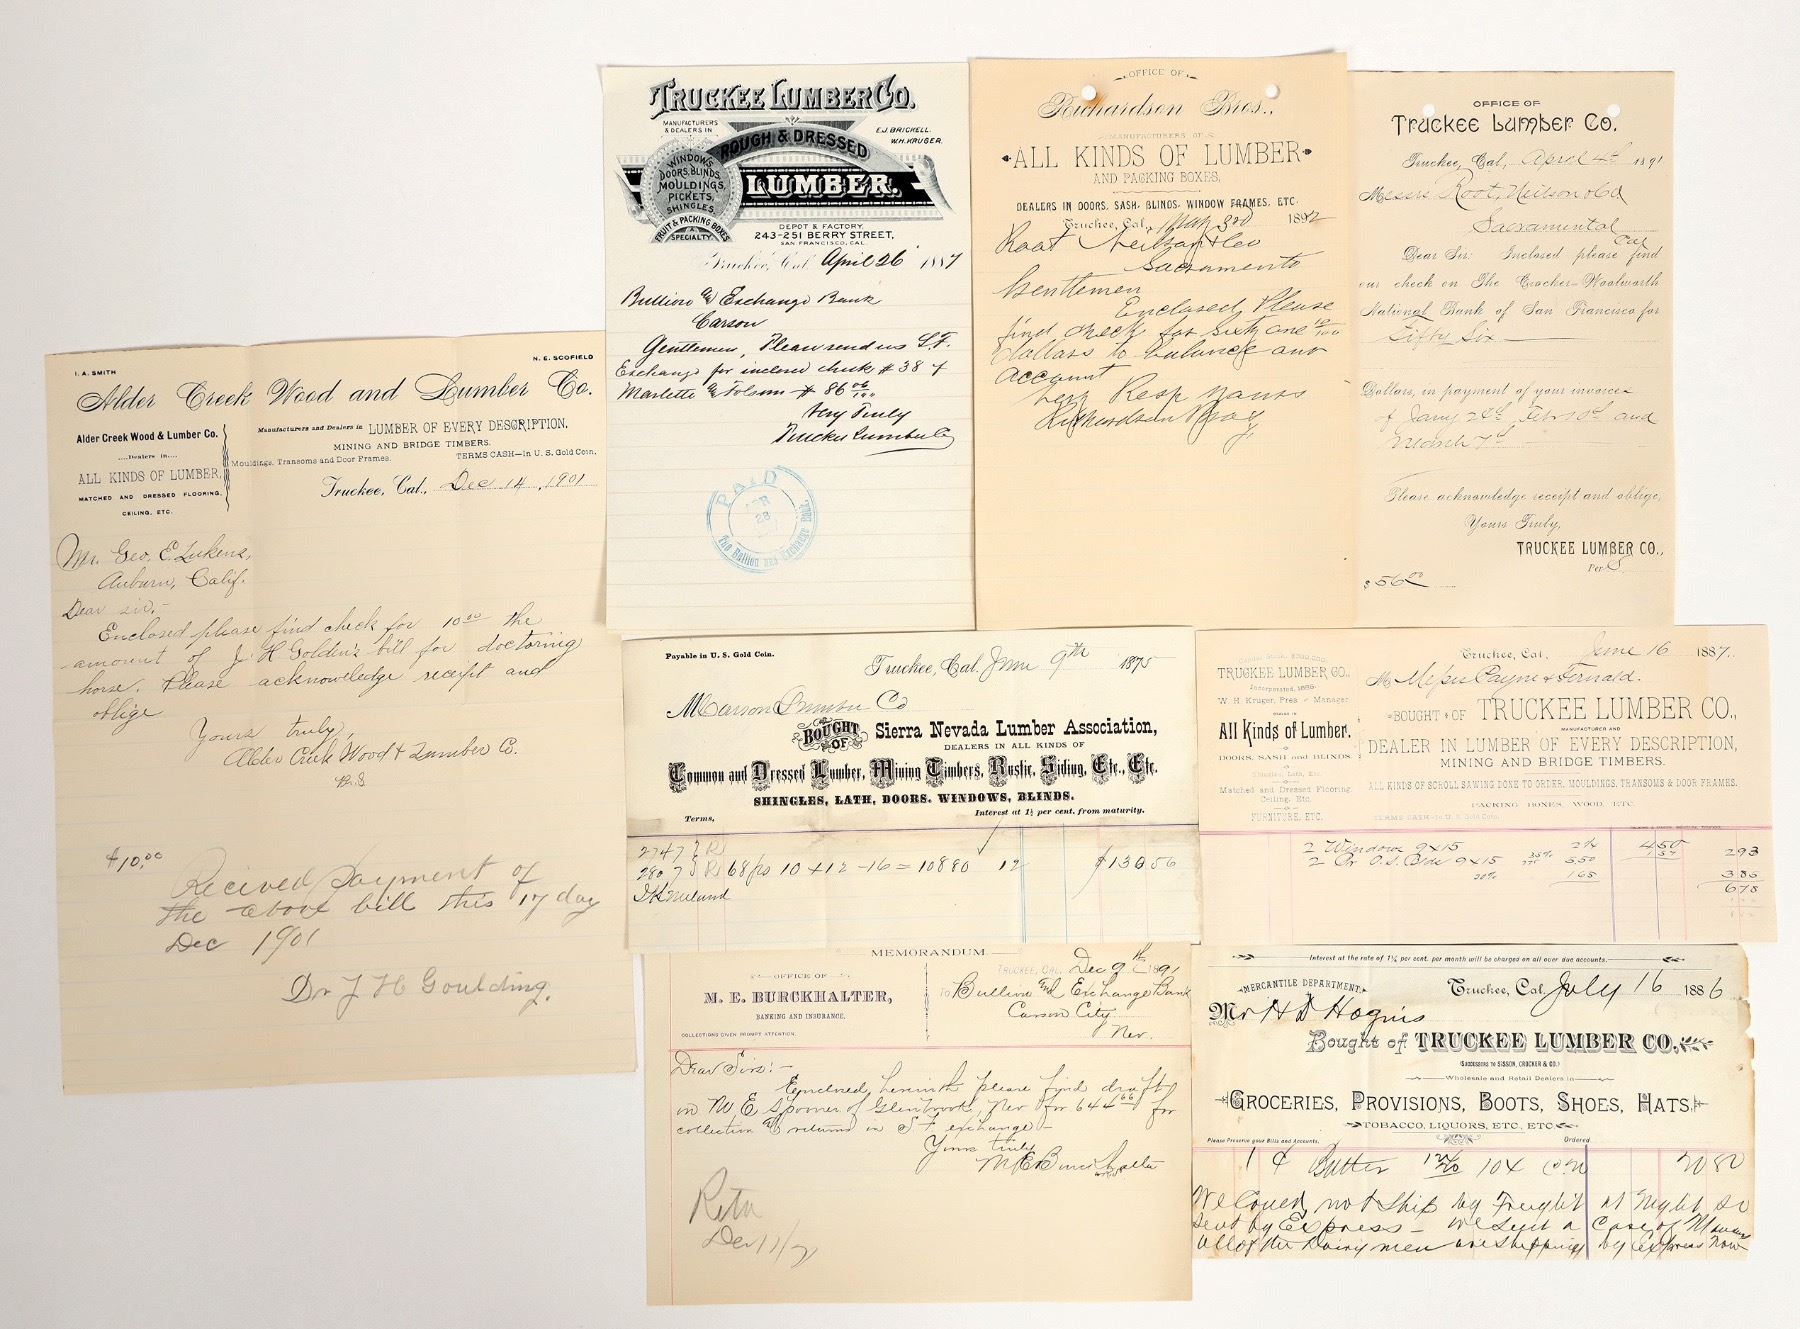 I. A. SMITH
N. E. SCOFIELD
Alder Creek Wood and Lumber Co.
Alder Creek Wood & Lumber Co.
....Dealers in....
ALL KINDS OF LUMBER,
MATCHED AND DRESSED FLOORING,
CEILING, ETC.
Manufacturers and Dealers in LUMBER OF EVERY DESCRIPTION.
MINING AND BRIDGE TIMBERS.
Mouldings, Transoms and Door Frames.
TERMS CASH—in U. S. Gold Coin.
Truckee, Cal., Dec 14, 1901
Mr. Geo. E. Lukens,
Auburn, Calif.
Dear sir,-
Enclosed please find check for 10.00 the
amount of J H Golden's bill for doctoring
horse. Please acknowledge receipt and
oblige
Yours truly,
Alder Creek Wood & Lumber Co.
$10.00
Recieved payment of
the above bill this 17 day
Dec 1901
Dr J H Goulding.
TRUCKEE LUMBER CO.
MANUFACTURERS
& DEALERS IN
E.J. BRICKELL.
W.H. KRUGER.
ROUGH & DRESSED
LUMBER.
WINDOWS,
DOORS, BLINDS,
MOULDINGS,
PICKETS,
SHINGLES,
FRUIT & PACKING BOXES
A SPECIALTY
DEPOT & FACTORY,
243-251 BERRY STREET,
SAN FRANCISCO, CAL.
Truckee, Cal. April 26 1887
Bullion & Exchange Bank
Carson
Gentlemen, Please send us S.F.
Exchange for inclosed check # 384
Marlette & Folsom $ 86 06/100
Very Truly
Truckee Lumber Co
PAID
APR
28
The Bullion and Exchange Bank.
OFFICE OF
Richardson Bros.,
MANUFACTURERS OF
ALL KINDS OF LUMBER
AND PACKING BOXES,
DEALERS IN DOORS, SASH, BLINDS, WINDOW FRAMES, ETC.
Truckee, Cal., May 3rd 1892
Root Neilson & Co
Sacramento
Gentlemen
Enclosed Please
find check for sixty one 10/100
dollars to balance our
account
Very Resp Yours
Richardson Bros
OFFICE OF
Truckee Lumber Co.
Truckee, Cal., April 4th 1891
Messrs Root, Neilson & Co
Sacramento
Cal
Dear Sir: Inclosed please find
our check on The Crocker-Woolworth
National Bank of San Francisco for
Fifty Six
Dollars, in payment of your invoice
of Jany 24th Feb 10th and
March 7th
Please acknowledge receipt and oblige,
Yours Truly,
TRUCKEE LUMBER CO.,
Per S
$56.00
Payable in U. S. Gold Coin.
Truckee, Cal. June 9th 1875
M Carson Lumber Co
BOUGHT OF Sierra Nevada Lumber Association,
DEALERS IN ALL KINDS OF
Common and Dressed Lumber, Mining Timbers, Rustic, Siding, Etc., Etc.
SHINGLES, LATH, DOORS, WINDOWS, BLINDS.
Terms,
Interest at 1½ per cent. from maturity.
2747
2807 68 ps 10 + 12 - 16 = 10880 12 $130 56
Capital Stock, $300,000
TRUCKEE LUMBER CO.,
Incorporated, 1886
W. H. Kruger, Pres and Manager
DEALER IN
All Kinds of Lumber.
DOORS, SASH and BLINDS
Shingles, Lath, Etc.
Matched and Dressed Flooring
Ceiling, Etc.
FURNITURE, ETC.
Truckee, Cal. June 16 1887.
M Messrs Payne & Fernald.
BOUGHT OF TRUCKEE LUMBER CO.,
MANUFACTURER AND
DEALER IN LUMBER OF EVERY DESCRIPTION,
MINING AND BRIDGE TIMBERS.
ALL KINDS OF SCROLL SAWING DONE TO ORDER, MOULDINGS, TRANSOMS & DOOR FRAMES.
PACKING BOXES, WOOD, ETC.
TERMS CASH—in U. S. Gold Coin.
2 Windows 9x15 2¼ 450 293
2 Pr O.S. Blds 9x15 35% 550
30% 165 385
678
MEMORANDUM.
OFFICE OF
M. E. BURCKHALTER,
BANKING AND INSURANCE.
COLLECTIONS GIVEN PROMPT ATTENTION.
TRUCKEE, CAL. Dec 9th 1891
To Bullion and Exchange Bank
Carson City
Nev.
Dear Sirs:-
Enclosed herewith please find draft
on M E Spooner of Glenbrook, Nev for 644 66 for
collection & returns in S F exchange-
Yours truly
M E Burckhalter
Retn
Dec 11/91
Interest at the rate of 1¼ per cent. per month will be charged on all over due accounts.
MERCANTILE DEPARTMENT.
Truckee, Cal. July 16 1886
Mr H D Hogins
Bought of TRUCKEE LUMBER CO.
(SUCCESSORS TO SISSON, CROCKER & CO.)
Wholesale and Retail Dealers in
GROCERIES, PROVISIONS, BOOTS, SHOES, HATS,
TOBACCO, LIQUORS, ETC., ETC.
Please Preserve your Bills and Accounts.
Ordered
1 C Butter 124/20 104 @ 20 20 80
We Could not Ship by Freight at Night so
sent by Express - We sent a Case of
all of the Dairy men are shipping by Express now